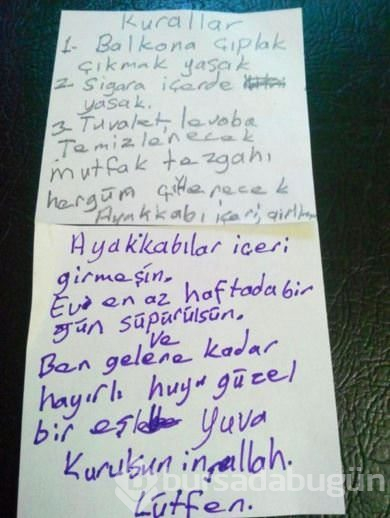 Kurallar
1- Balkona çıplak
çıkmak yasak
2- Sigara içerde
yasak.
3- Tuvalet, levoba
Temizlenecek
mutfak tezgahı
hergün çitlenecek
Ayakkabı içeri
Ayakkabılar içeri
girmesin.
Evi en az haftada bir
gün süpürülsün.
ve
Ben gelene kadar
hayırlı huyu güzel
bir eşle Yuva
Kurulsun inşallah.
Lütfen.
bursadabugün